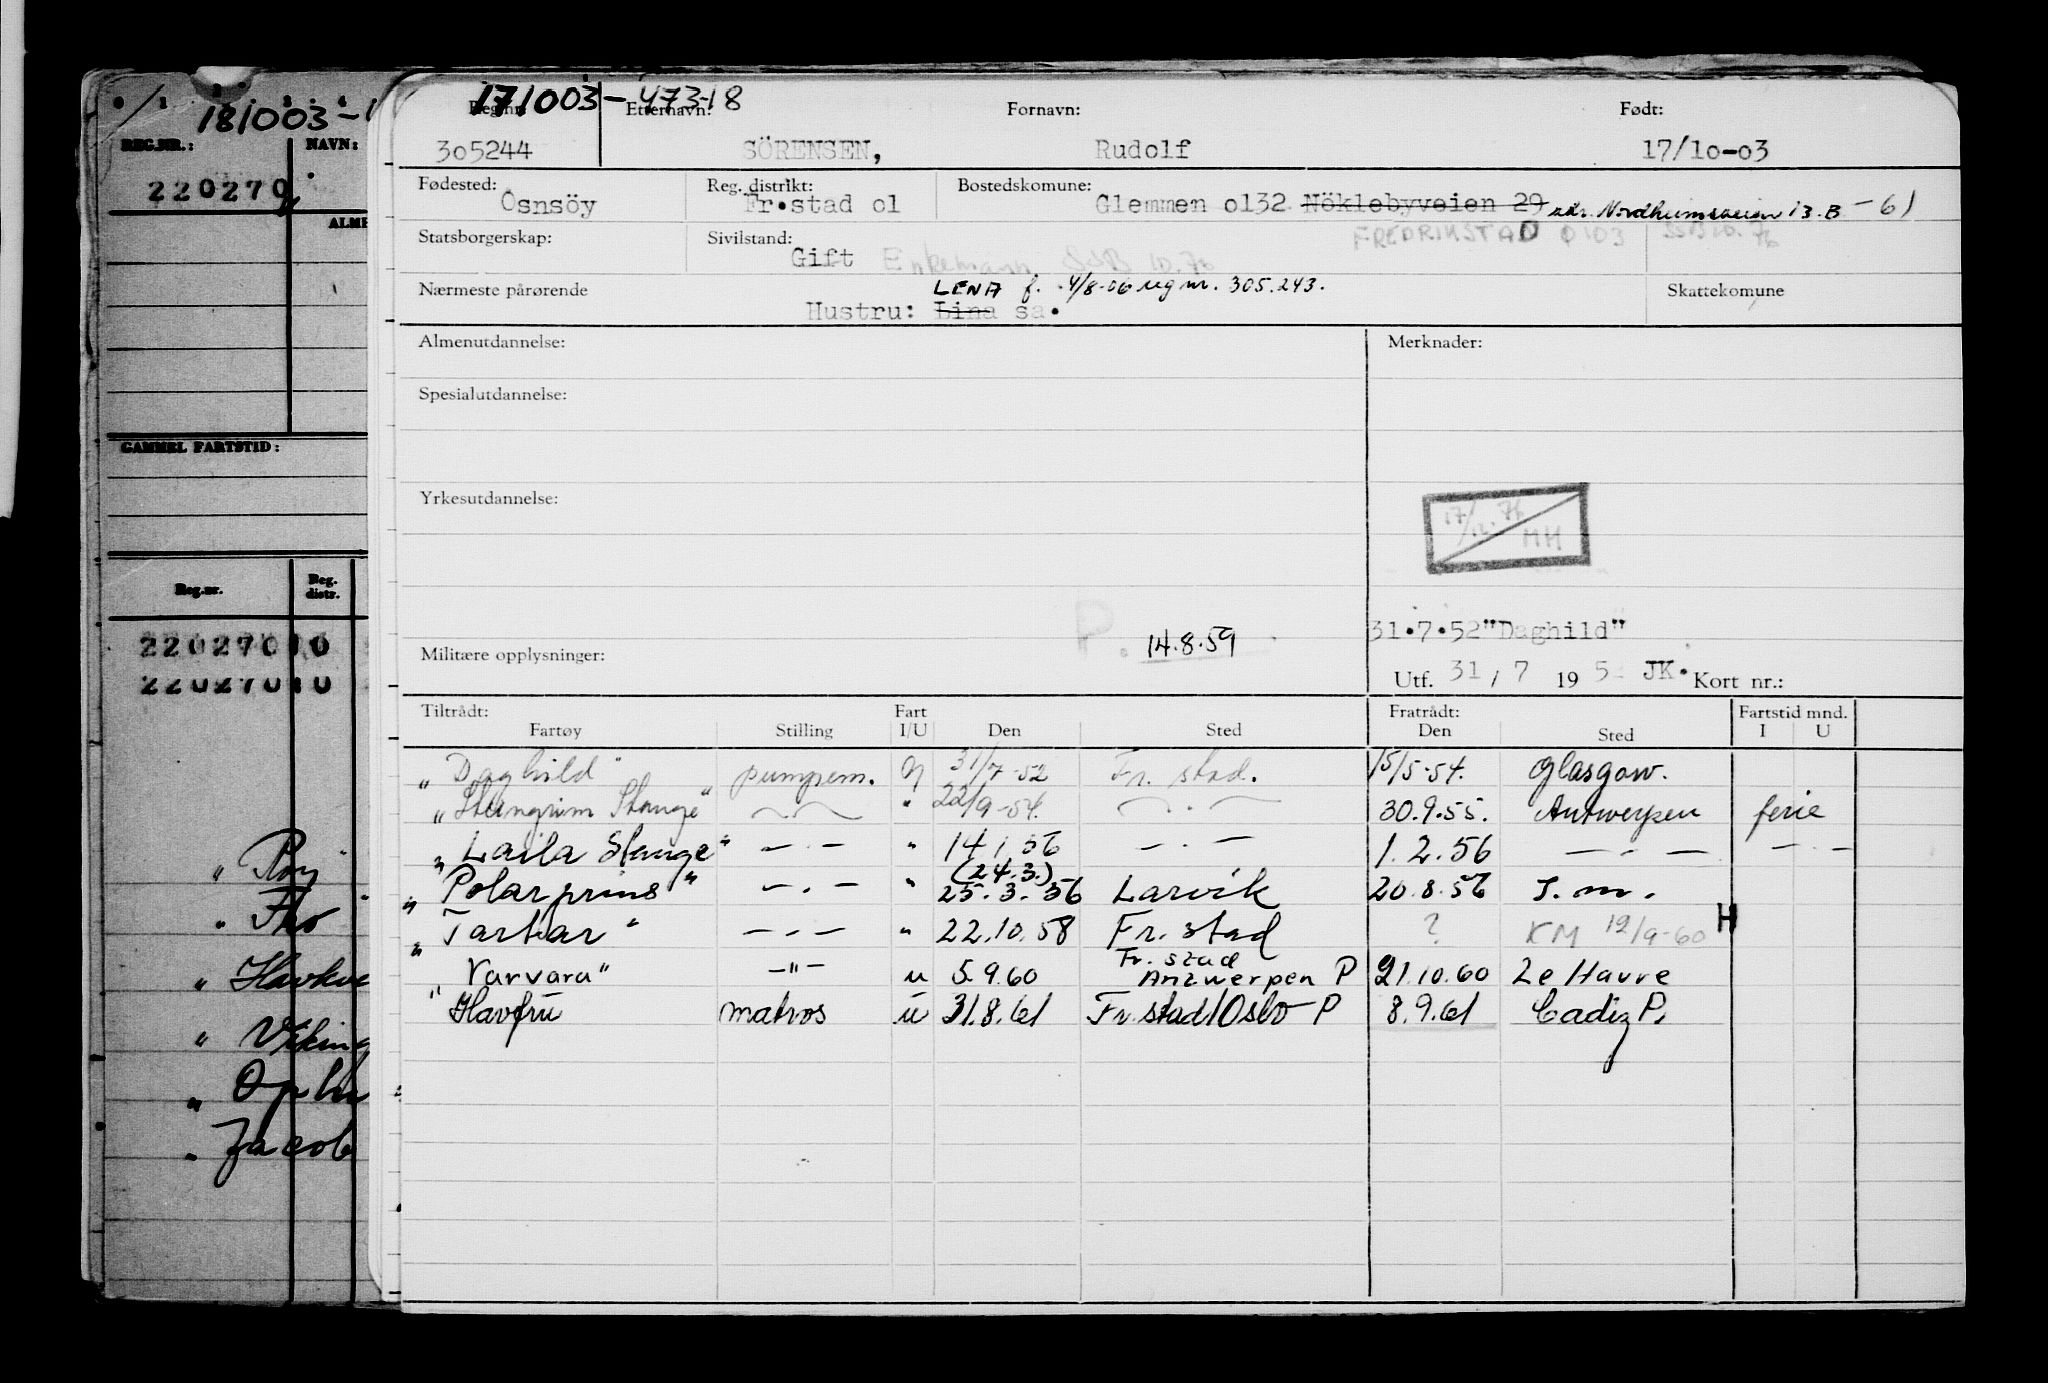 1 2 3 4
181003-1
REG.NR.: NAVN:
220270
ALM
GAMMEL FARTSTID:
Reg.nr. Reg. distr.
220270 10
220270 10
" Roy
" Tho "
" Havkve
" Viking
" Ophe
" Jacob
171003-47318
Reg.nr. Etternavn: Fornavn: Født:
305244 SÖRENSEN, Rudolf 17/10-03
Fødested: Reg. distrikt: Bostedskomune:
Osnsöy Fr.stad 01 Glemmen 0132 Nöklebyveien 29 adr. Nordheimsveien 13.B -61
Statsborgerskap: Sivilstand: FREDRIKSTAD 0103 SSB 10.76
Gift Enkemann SSB 10.76
Nærmeste pårørende LENA f. 4/8-06 reg nr. 305.243. Skattekomune
Hustru: Lina sa.
Almenutdannelse: Merknader:
Spesialutdannelse:
Yrkesutdannelse:
17/12.76 MH
31.7.52"Daghild"
P. 14.8.59
Militære opplysninger:
Utf. 31 / 7 19 5 JK. Kort nr.:
Tiltrådt: Fart Fratrådt: Fartstid mnd.
Fartøy Stilling I/U Den Sted Den Sted I U
"Daghild" pumpem. 31/7-52 Fr. stad. 15/5-54. Glasgow.
"Steingrim Stange" " 22/9-54. — . — 30.9.55. Antwerpen ferie
"Laila Stange" — . — " 14.1.56 — . — 1.2.56 — . — — . —
(24.3.)
"Polarprins" — . — " 25.3.56 Larvik 20.8.56 S.m.
"Tartar" — . — " 22.10.58 Fr. stad ? KM 12/9-60 H
Fr. stad
"Varvara" —"— u 5.9.60 Antwerpen P 21.10.60 Le Havre
"Havfru matros u 31.8.61 Fr.stad/Oslo P 8.9.61 Cadiz P.